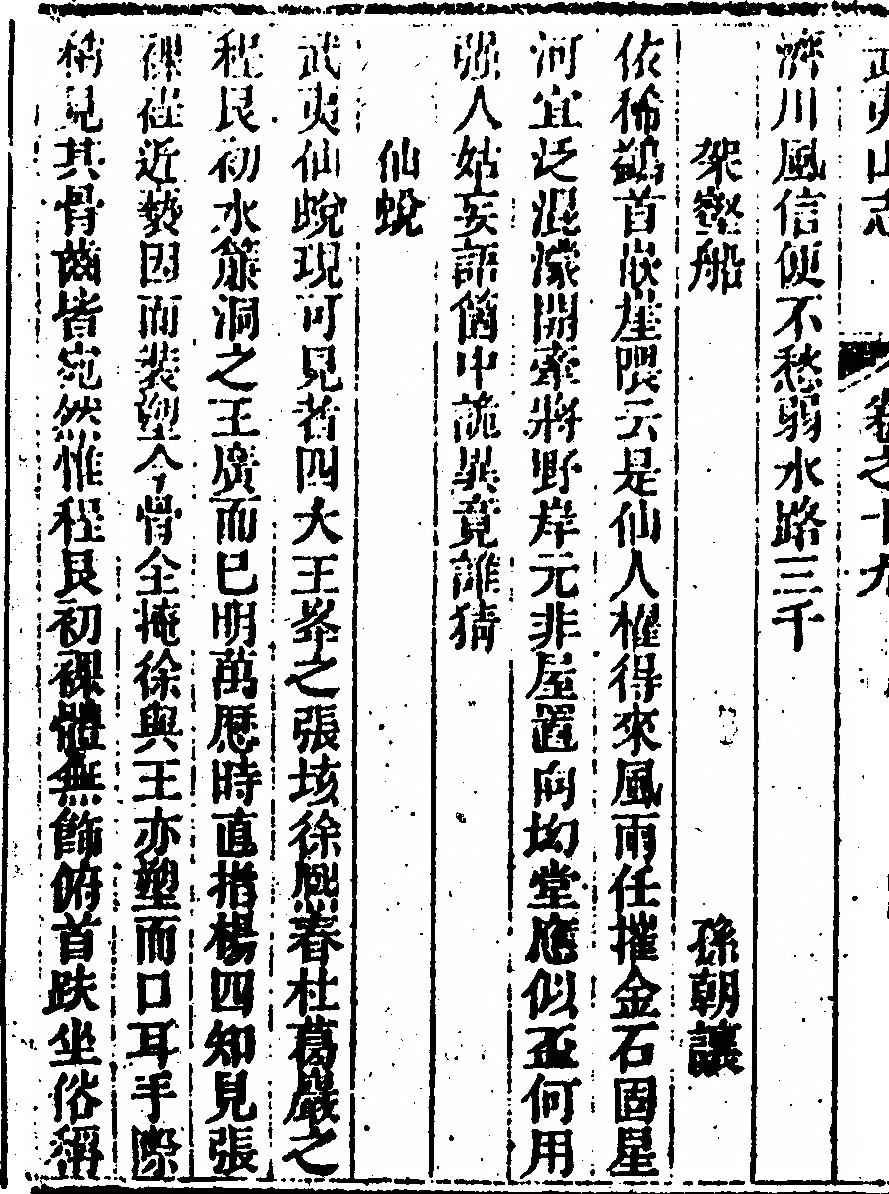 武夷山志 卷之十九
濟川風信便不愁弱水路三千
架壑船 孫朝讓
依稀鷁首嵌崖隈云是仙人櫂得來風雨任摧金石固星
河宜泛混濛開牽將野岸元非屋置向坳堂應似盃何用
强人姑妄語箇中詭異竟誰猜
仙蛻
武夷仙蛻現可見者四大王峯之張垓徐熙春杜葛巖之
程艮初水簾洞之王廣而已明萬厯時直指楊四知見張
裸在近褻因而裝塑今骨全掩徐與王亦塑而口耳手際
稍見其骨齒皆宛然惟程艮初裸體無飾俯首趺坐俗稱